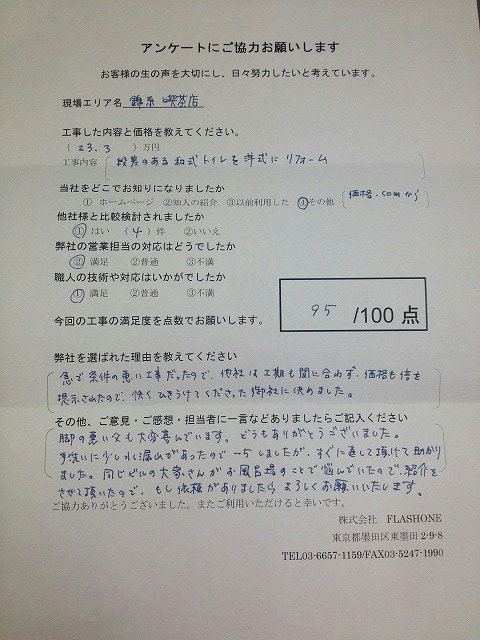 アンケートにご協力お願いします
お客様の生の声を大切にし、日々努力したいと考えています。
現場エリア名 錦糸 喫茶店
工事した内容と価格を教えてください。
( 23.3 ) 万円
工事内容 段差のある和式トイレを洋式にリフォーム
当社をどこでお知りになりましたか
① ホームページ ②知人の紹介 ③以前利用した ④その他 (価格.comから)
他社様と比較検討されましたか
① はい (4) 件 ②いいえ
弊社の営業担当の対応はどうでしたか
② 満足 ②普通 ③不満
職人の技術や対応はいかがでしたか
① 満足 ②普通 ③不満
今回の工事の満足度を点数でお願いします。 95 /100 点
弊社を選ばれた理由を教えてください
急で条件の悪い工事だったので、他社は工期も間に合わず、価格も倍を
提示されたので、快くひきうけてくださった御社に決めました。
その他、ご意見・ご感想・担当者に一言などありましたらご記入ください
脚の悪い父も大変喜んでいます。どうもありがとうございました。
手洗いに少し水漏れがあったので−5しましたが、すぐに直して頂けて助かり
ました。同じビルの大家さんがお風呂場のことで悩んでいたので、紹介を
させて頂いたので、もし依頼がありましたらよろしくお願いいたします。
ご協力ありがとうございました。またご利用いただけると幸いです。
株式会社 FLASHONE
東京都墨田区東墨田 2-9-8
TEL03-6657-1159/FAX03-5247-1990